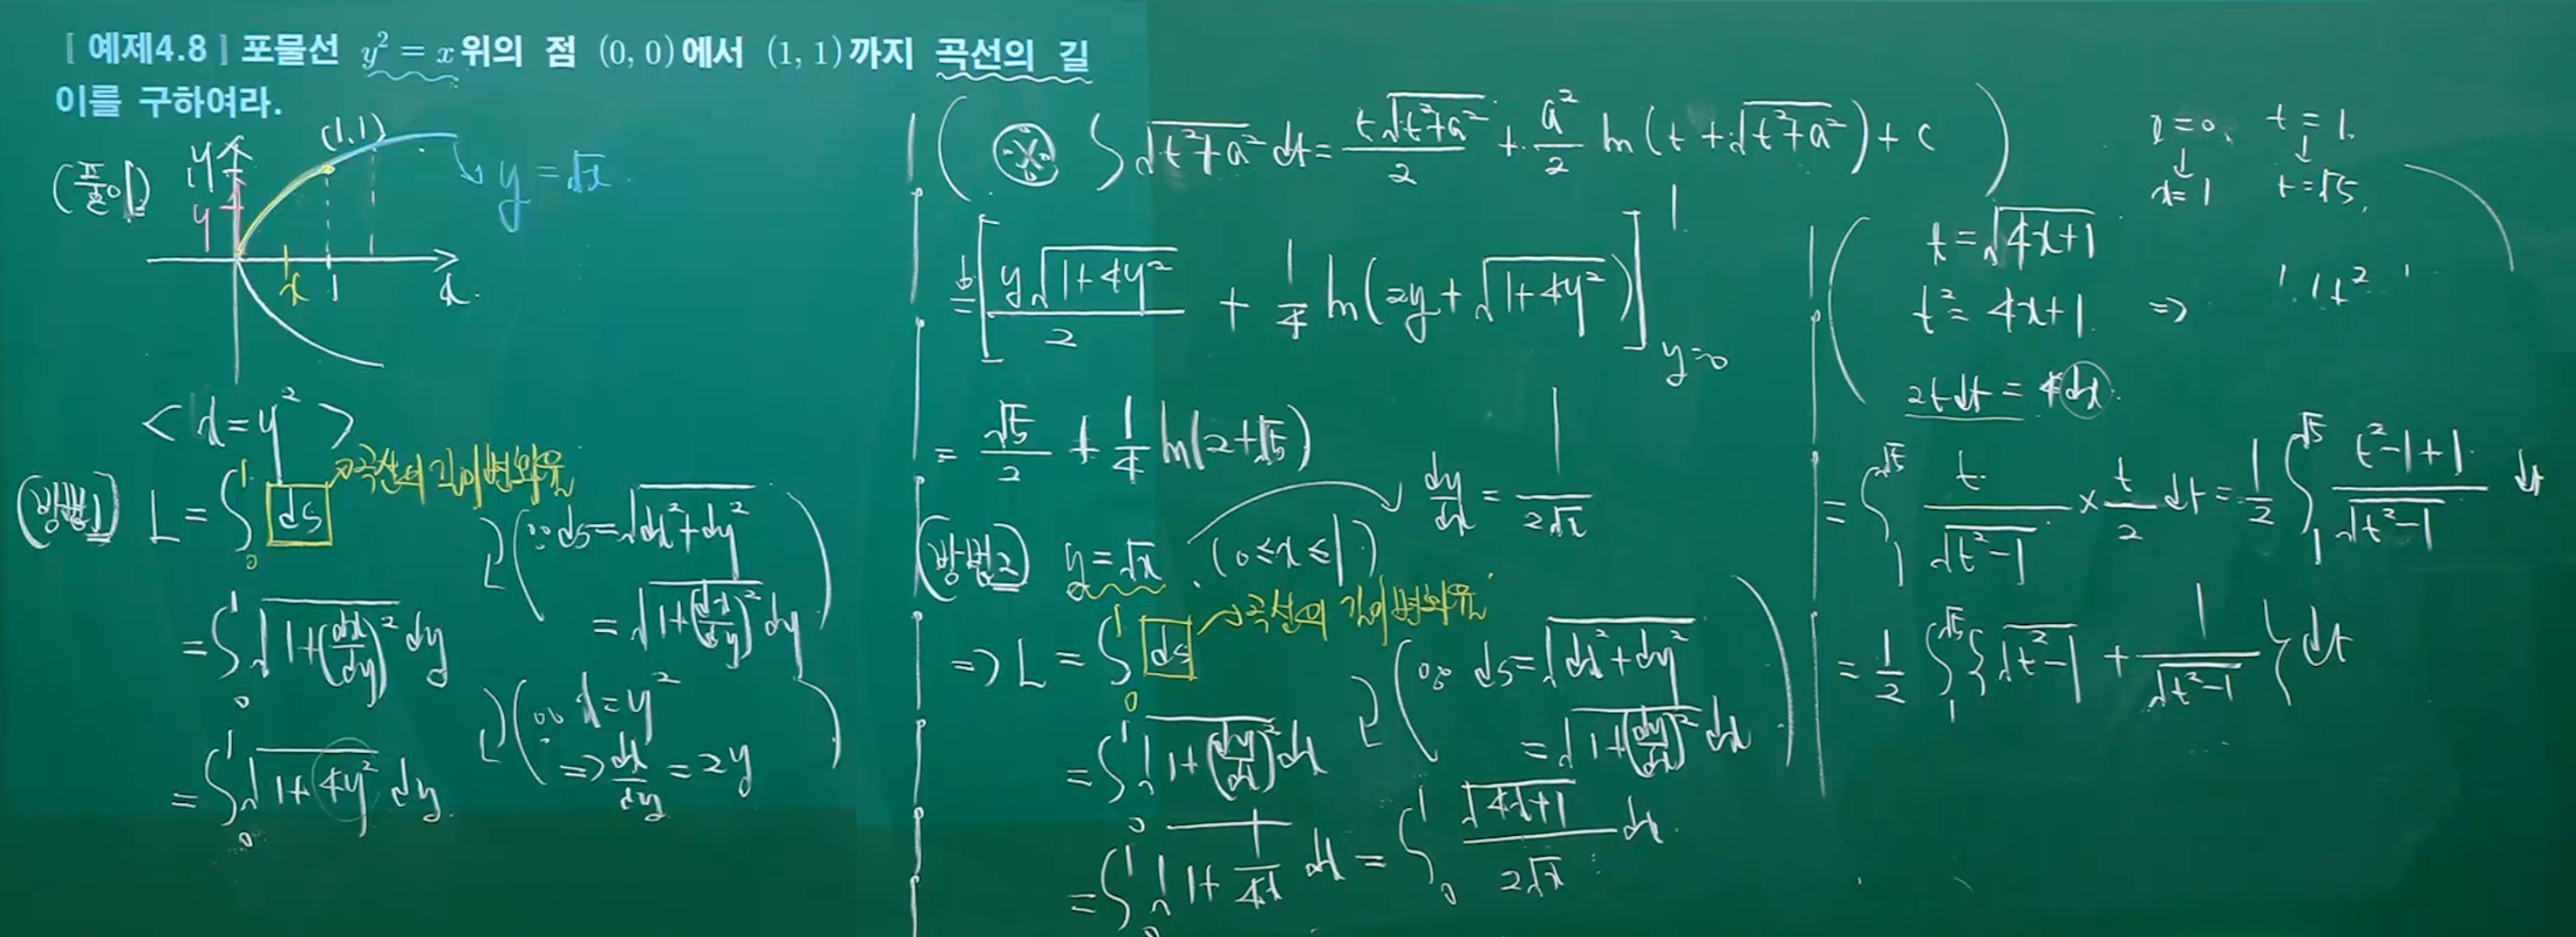 [ 예제4.8 ] 포물선 y² = x 위의 점 (0, 0)에서 (1, 1)까지 곡선의 길
이를 구하여라.
(풀이)
y
(1,1)
1
y
x
1
1
x
y = √x
< x = y² >
(방법1) L = ∫₀¹ ds → 곡선의 길이 변화율
(∵ ds = √(dx²+dy²)
= √(1+(dx/dy)²) dy)
= ∫₀¹ √(1+(dx/dy)²) dy
(∵ x = y²
⇒ dx/dy = 2y)
= ∫₀¹ √(1+4y²) dy
( ※ ∫ √(t²+a²) dt = t√(t²+a²)/2 + a²/2 ln(t+√(t²+a²)) + c )
= [ y√(1+4y²)/2 + 1/4 ln(2y+√(1+4y²)) ]¹ y=0
= √5/2 + 1/4 ln(2+√5)
(방법2) y = √x, (0≤x≤1) → dy/dx = 1/(2√x)
⇒ L = ∫₀¹ ds → 곡선의 길이 변화율
(∵ ds = √(dx²+dy²)
= √(1+(dy/dx)²) dx)
= ∫₀¹ √(1+(dy/dx)²) dx
= ∫₀¹ √(1+1/(4x)) dx = ∫₀¹ √(4x+1)/(2√x) dx
x=0, t=1
↓ ↓
x=1 t=√5,
( t = √(4x+1)
t² = 4x+1 ⇒
2t dt = 4dx
= ∫₁^√5 t/√(t²-1) × t/2 dt = 1/2 ∫₁^√5 (t²-1+1)/√(t²-1) dt
= 1/2 ∫₁^√5 { √(t²-1) + 1/√(t²-1) } dt